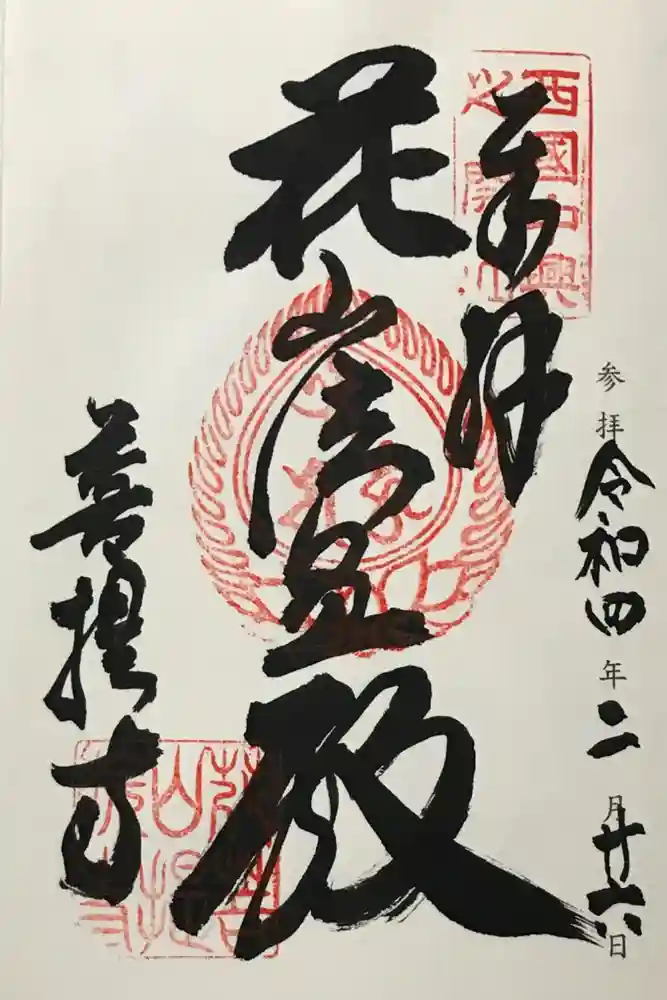 参拝 令和四年二月廿六日
西國中興
奉拝
花山法皇殿
菩提寺